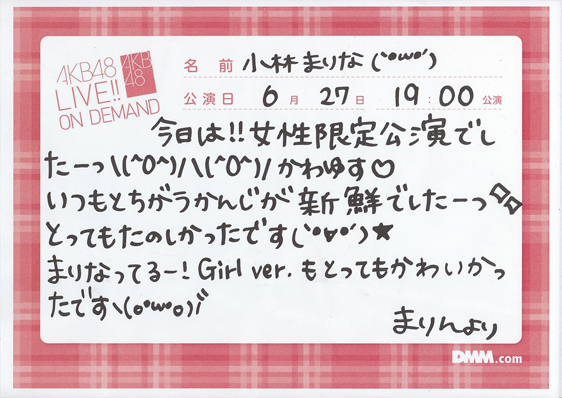 AKB48
LIVE!!
ON DEMAND
AKB
48
名 前 小林まりな(`•ω•´)
公演日 6月 27日 19:00 公演
今日は!!女性限定公演でし
たーっ\(^O^)/\(^O^)/かわゆす♡
いつもとちがうかんじが新鮮でしたーっ
とってもたのしかったです(`•∀•´)★
まりなってるー!Girl ver.もとってもかわいかっ
たですヽ(o•ω•o)ﾞ
まりんより
DMM.com